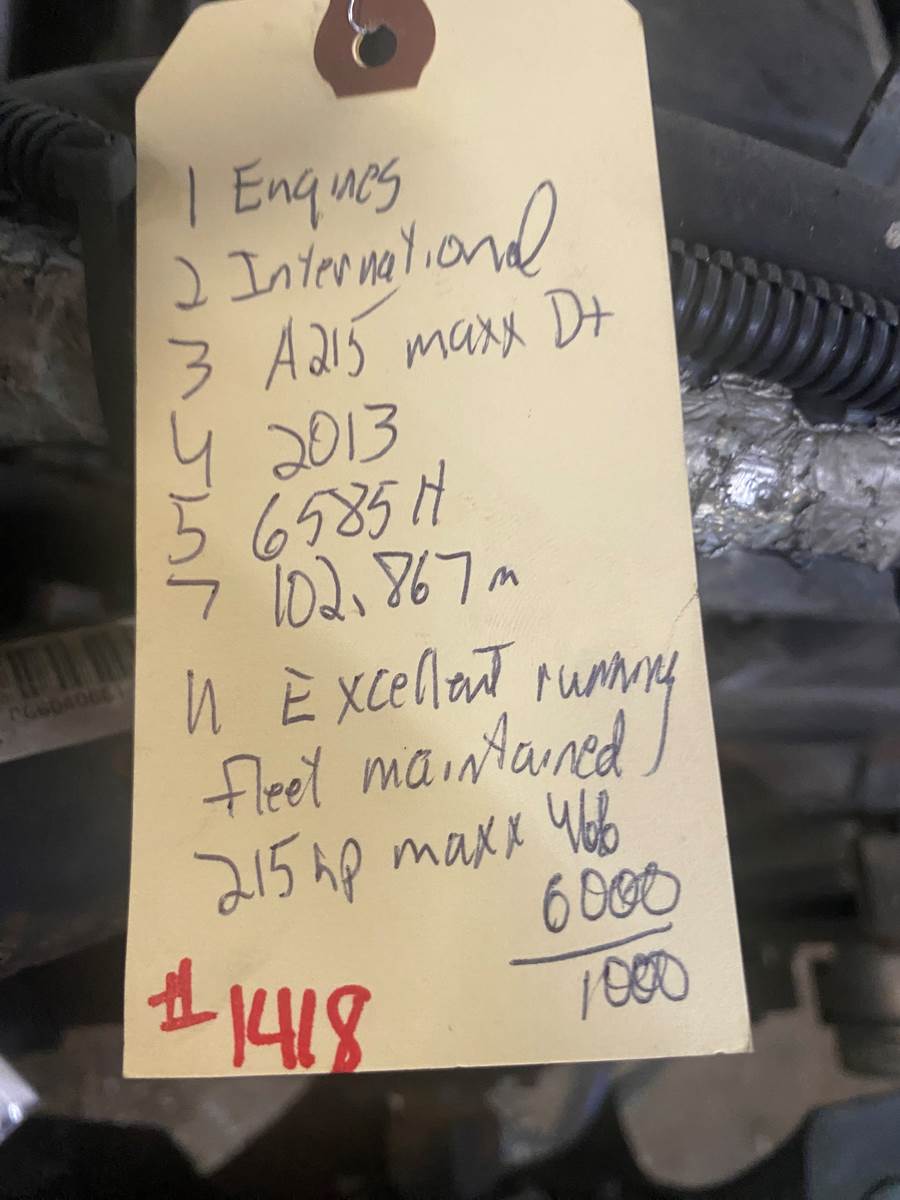 1 Engines
2 International
3 A215 maxx D+
4 2013
5 6585H
7 102,867 m
11 Excellent running
fleet maintained
215 hp maxx
6000
1000
#1418